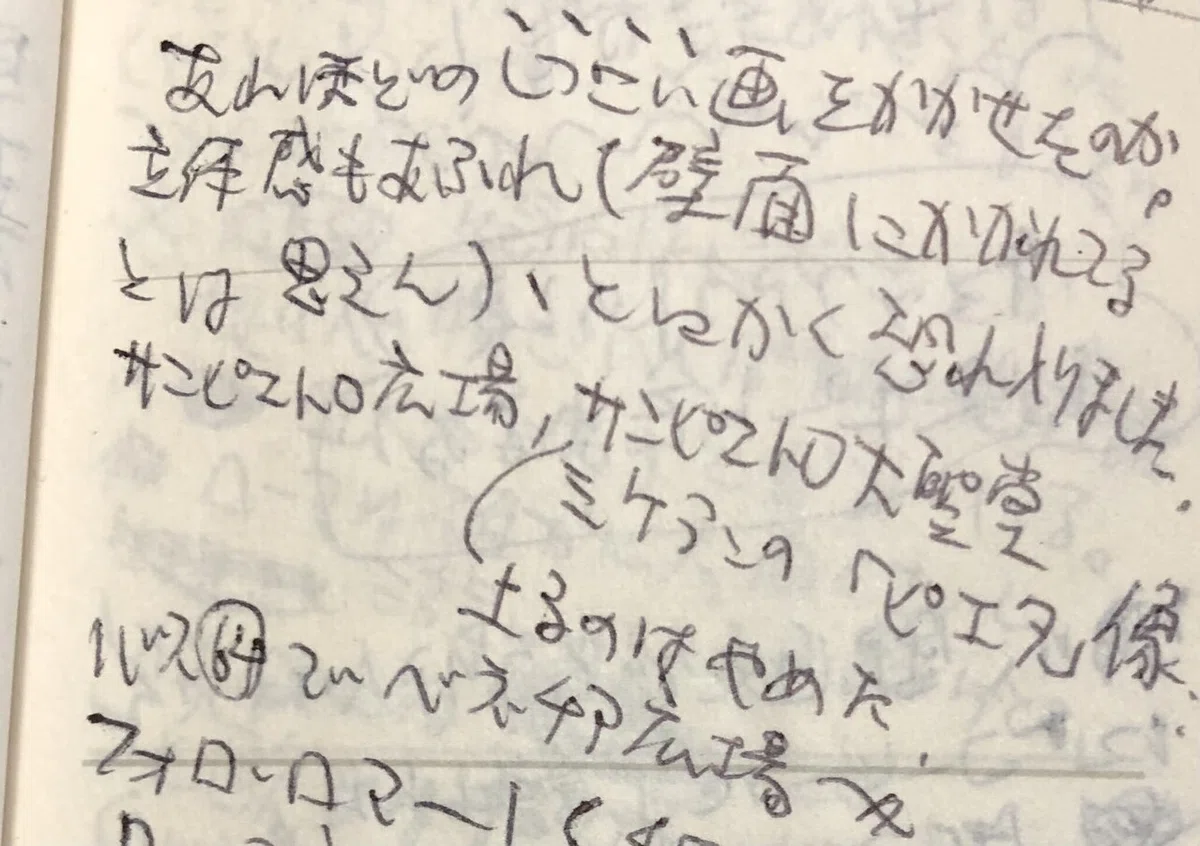 あれほどのしつこい画をかかせたのか。
立体感もあふれ(壁面にかかれてる
とは思えん)、とにかく恐れ入りました.
サンピエトロ広場, サンピエトロ大聖堂
ミケランの ピエタ像.
上るのはやめた.
バス64でベネチア広場へ
フォロ・ロマーノ